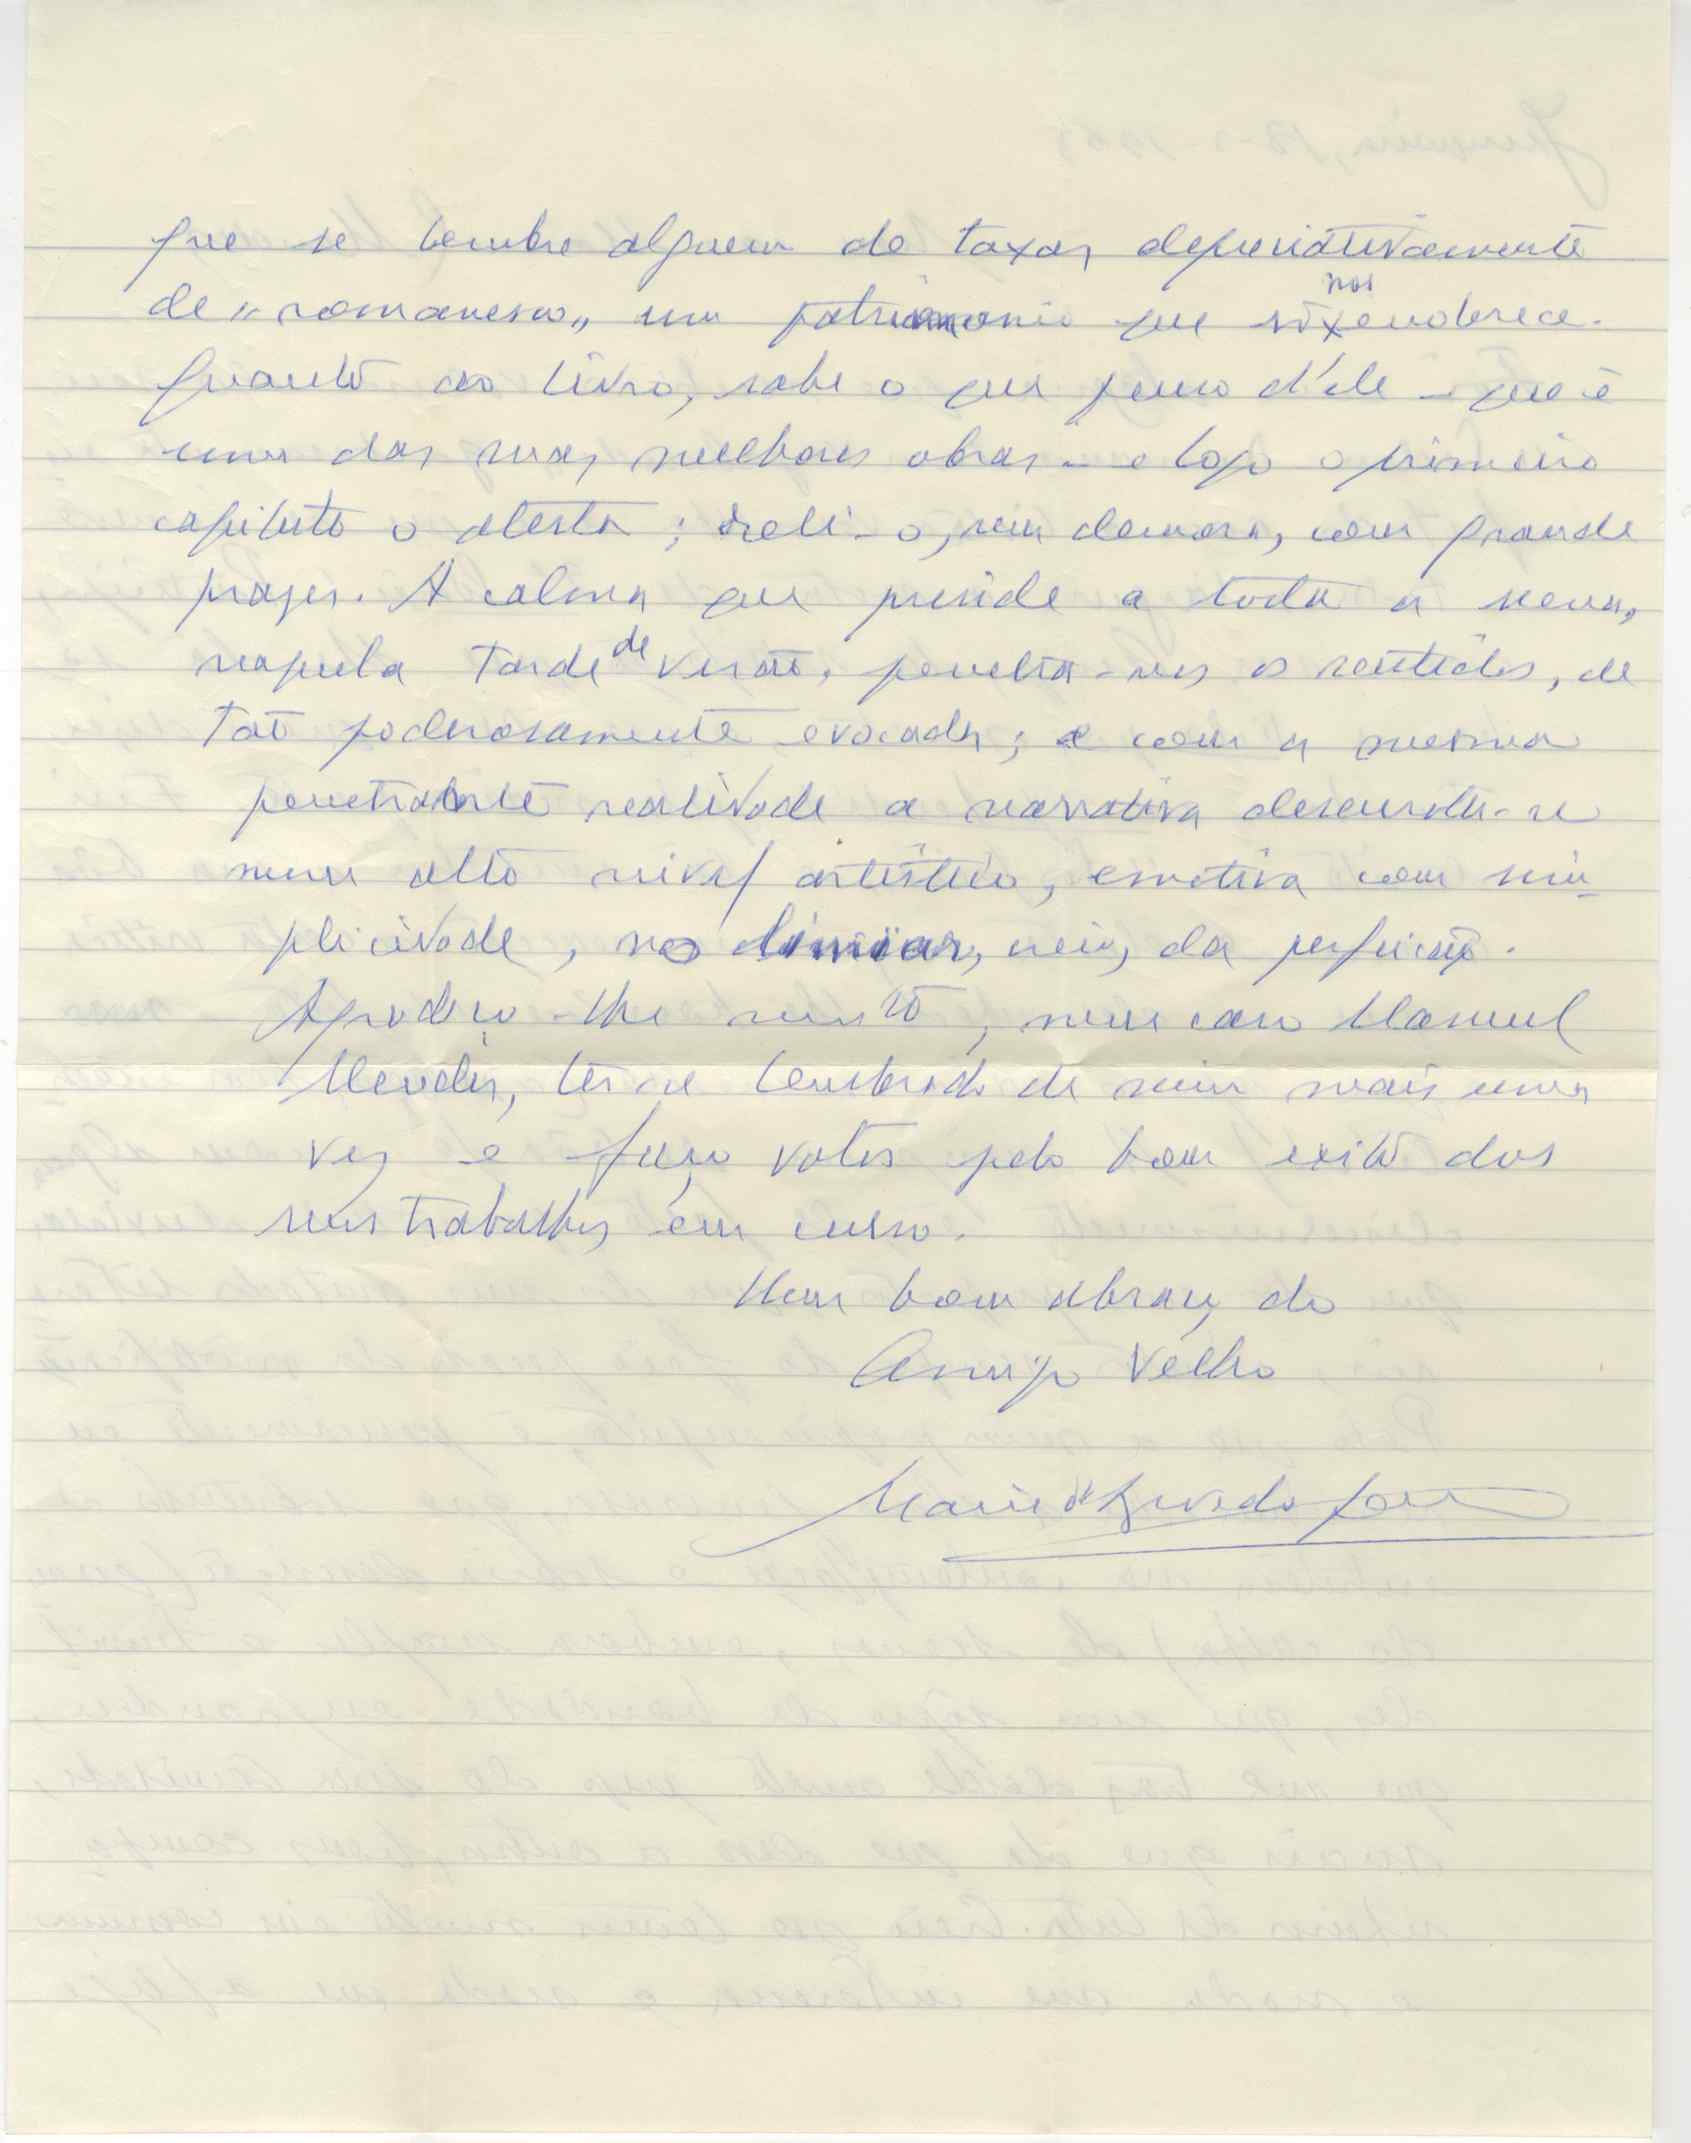 que se lembre alguem de taxar depreciativamente
de "romanesco" um patrimonio que só nos enobrece.
Quanto ao livro, sabe o que penso d'ele – que é
uma das suas melhores obras – e logo o primeiro
capitulo o atesta; reli-o, sem demora, com grande
prazer. A calma que preside a toda a scena,
naquela tarde de verão, penetra-nos os sentidos, de
tão poderosamente evocada; e com a mesma
penetrante realidade a narrativa desenrola-se
num alto nivel artístico, emotiva com sim-
plicidade, no limiar, creio, da perfeição.
Agradeço-lhe muito, meu caro Manuel
Mendes, ter-se lembrado de mim mais uma
vez e faço votos pelo bom exito dos
seus trabalhos em curso.
Um bom abraço do
Amigo Velho
Mario d'Azevedo Gomes